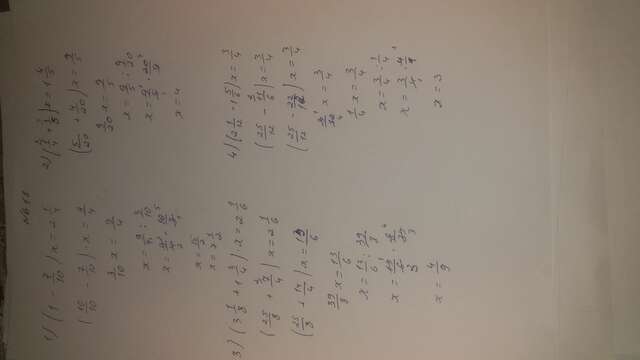 №613
1) (1 - 7/10) x = 2 1/4
(10/10 - 7/10) · x = 9/4
3/10 x = 9/4
x = 9/4 : 3/10
x = 9/4 · 10/3
x = 15/2
x = 7 1/2
2) (1/4 + 1/5) x = 1 4/5
(5/20 + 4/20) x = 9/5
9/20 x = 9/5
x = 9/5 : 9/20
x = 9/5 · 20/9
x = 4
3) (3 1/8 + 1 3/4) · x = 2 1/6
(25/8 + 7/4) x = 2 1/6
(25/8 + 14/4) x = 13/6
39/8 x = 13/6
x = 13/6 : 39/8
x = 13/6 · 8/39
x = 4/9
4) (2 1/12 - 1 5/6) x = 3/4
(25/12 - 11/6) x = 3/4
(25/12 - 22/12) x = 3/4
3/12 x = 3/4
1/4 x = 3/4
x = 3/4 : 1/4
x = 3/4 · 4/1
x = 3